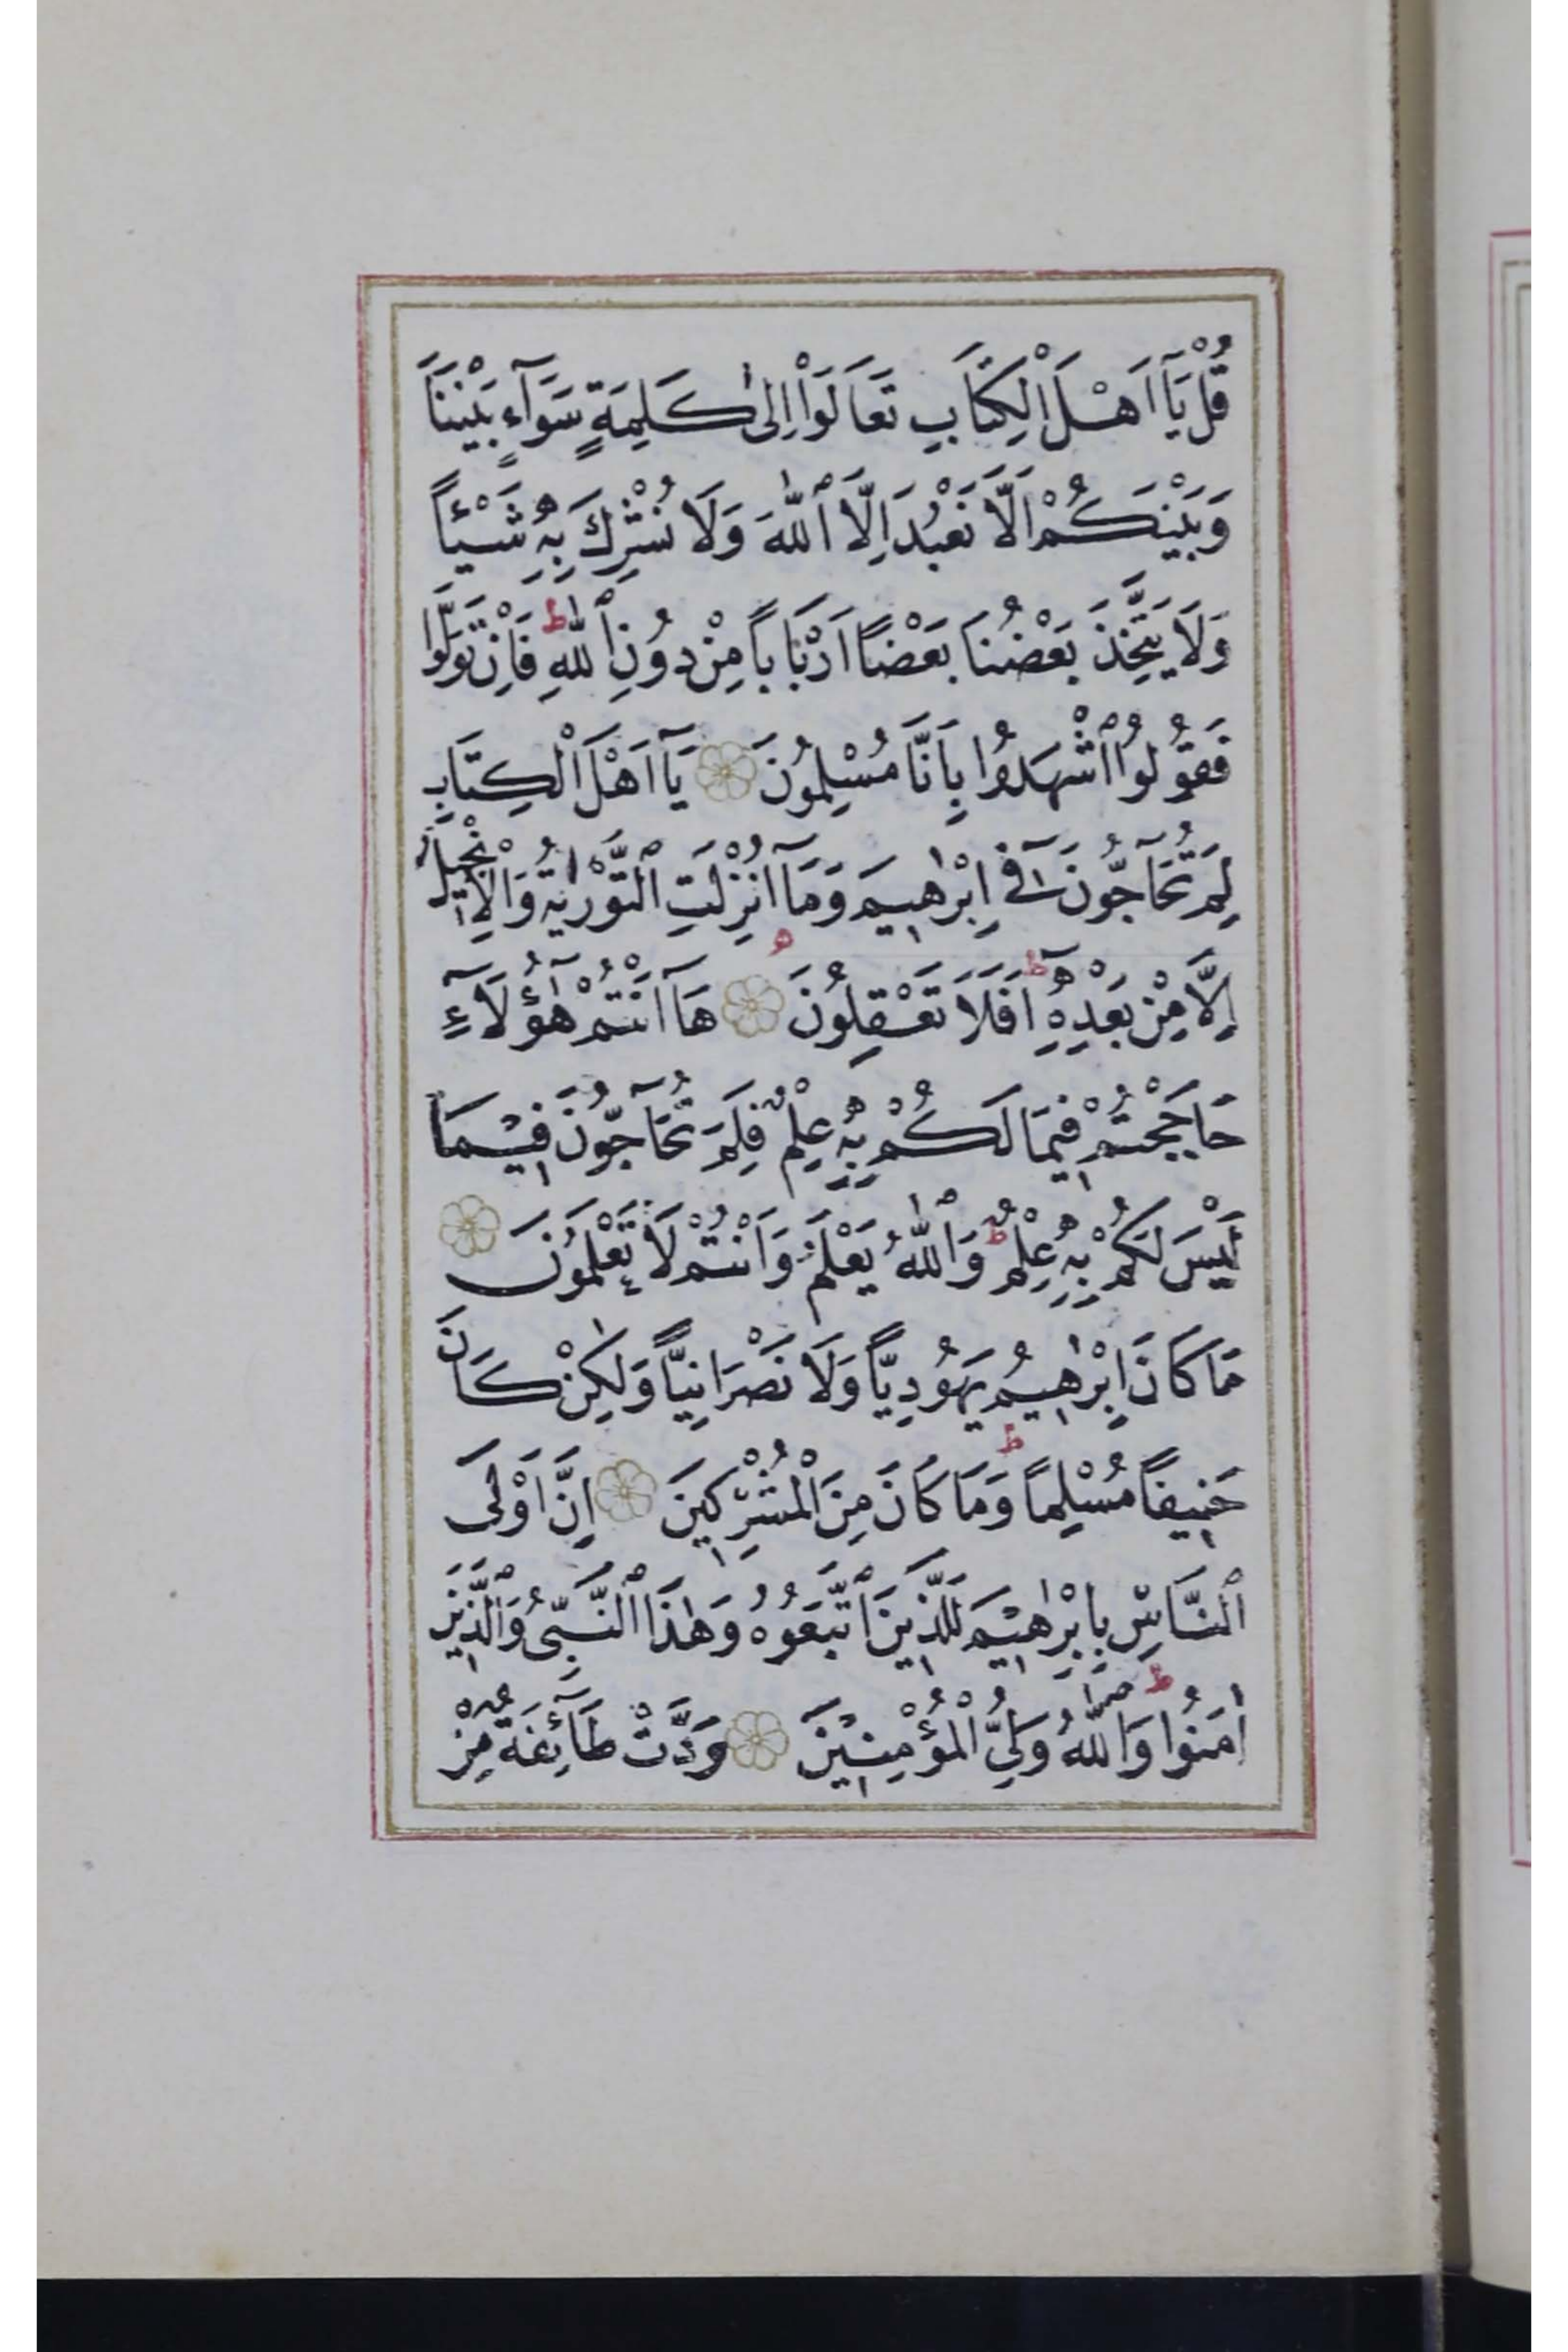 قُلْ يَٓا اَهْلَ الْكِتَابِ تَعَالَوْا اِلٰى كَلِمَةٍ سَوَٓاءٍ بَيْنَنَا
وَبَيْنَكُمْ اَلَّا نَعْبُدَ اِلَّا ٱللّٰهَ وَلَا نُشْرِكَ بِهٖ شَيْئاً
وَلَا يَتَّخِذَ بَعْضُنَا بَعْضًا اَرْبَاباً مِنْ دُونِ ٱللّٰهِ ط فَاِنْ تَوَلَّوْا
فَقُولُوا ٱشْهَدُوا بِاَنَّا مُسْلِمُونَ يَٓا اَهْلَ الْكِتَابِ
لِمَ تُحَٓاجُّونَ فٖٓي اِبْرٰهٖيمَ وَمَٓا اُنْزِلَتِ ٱلتَّوْرٰيةُ وَالْاِنْجٖيلُ
اِلَّا مِنْ بَعْدِهٖٓ ط اَفَلَا تَعْقِلُونَ هَٓا اَنْتُمْ هٰٓؤُلَٓاءِ
حَاجَجْتُمْ فٖيمَا لَكُمْ بِهٖ عِلْمٌ فَلِمَ تُحَٓاجُّونَ فٖيمَا
لَيْسَ لَكُمْ بِهٖ عِلْمٌ ط وَٱللّٰهُ يَعْلَمُ وَاَنْتُمْ لَا تَعْلَمُونَ
مَا كَانَ اِبْرٰهٖيمُ يَهُودِيًّا وَلَا نَصْرَانِيًّا وَلٰكِنْ كَانَ
حَنٖيفاً مُسْلِماً ط وَمَا كَانَ مِنَ الْمُشْرِكٖينَ اِنَّ اَوْلَى
ٱلنَّاسِ بِاِبْرٰهٖيمَ لَلَّذٖينَ ٱتَّبَعُوهُ وَهٰذَا ٱلنَّبِيُّ وَٱلَّذٖينَ
اٰمَنُوا ط وَٱللّٰهُ وَلِيُّ الْمُؤْمِنٖينَ وَدَّتْ طَٓائِفَةٌ مِنْ